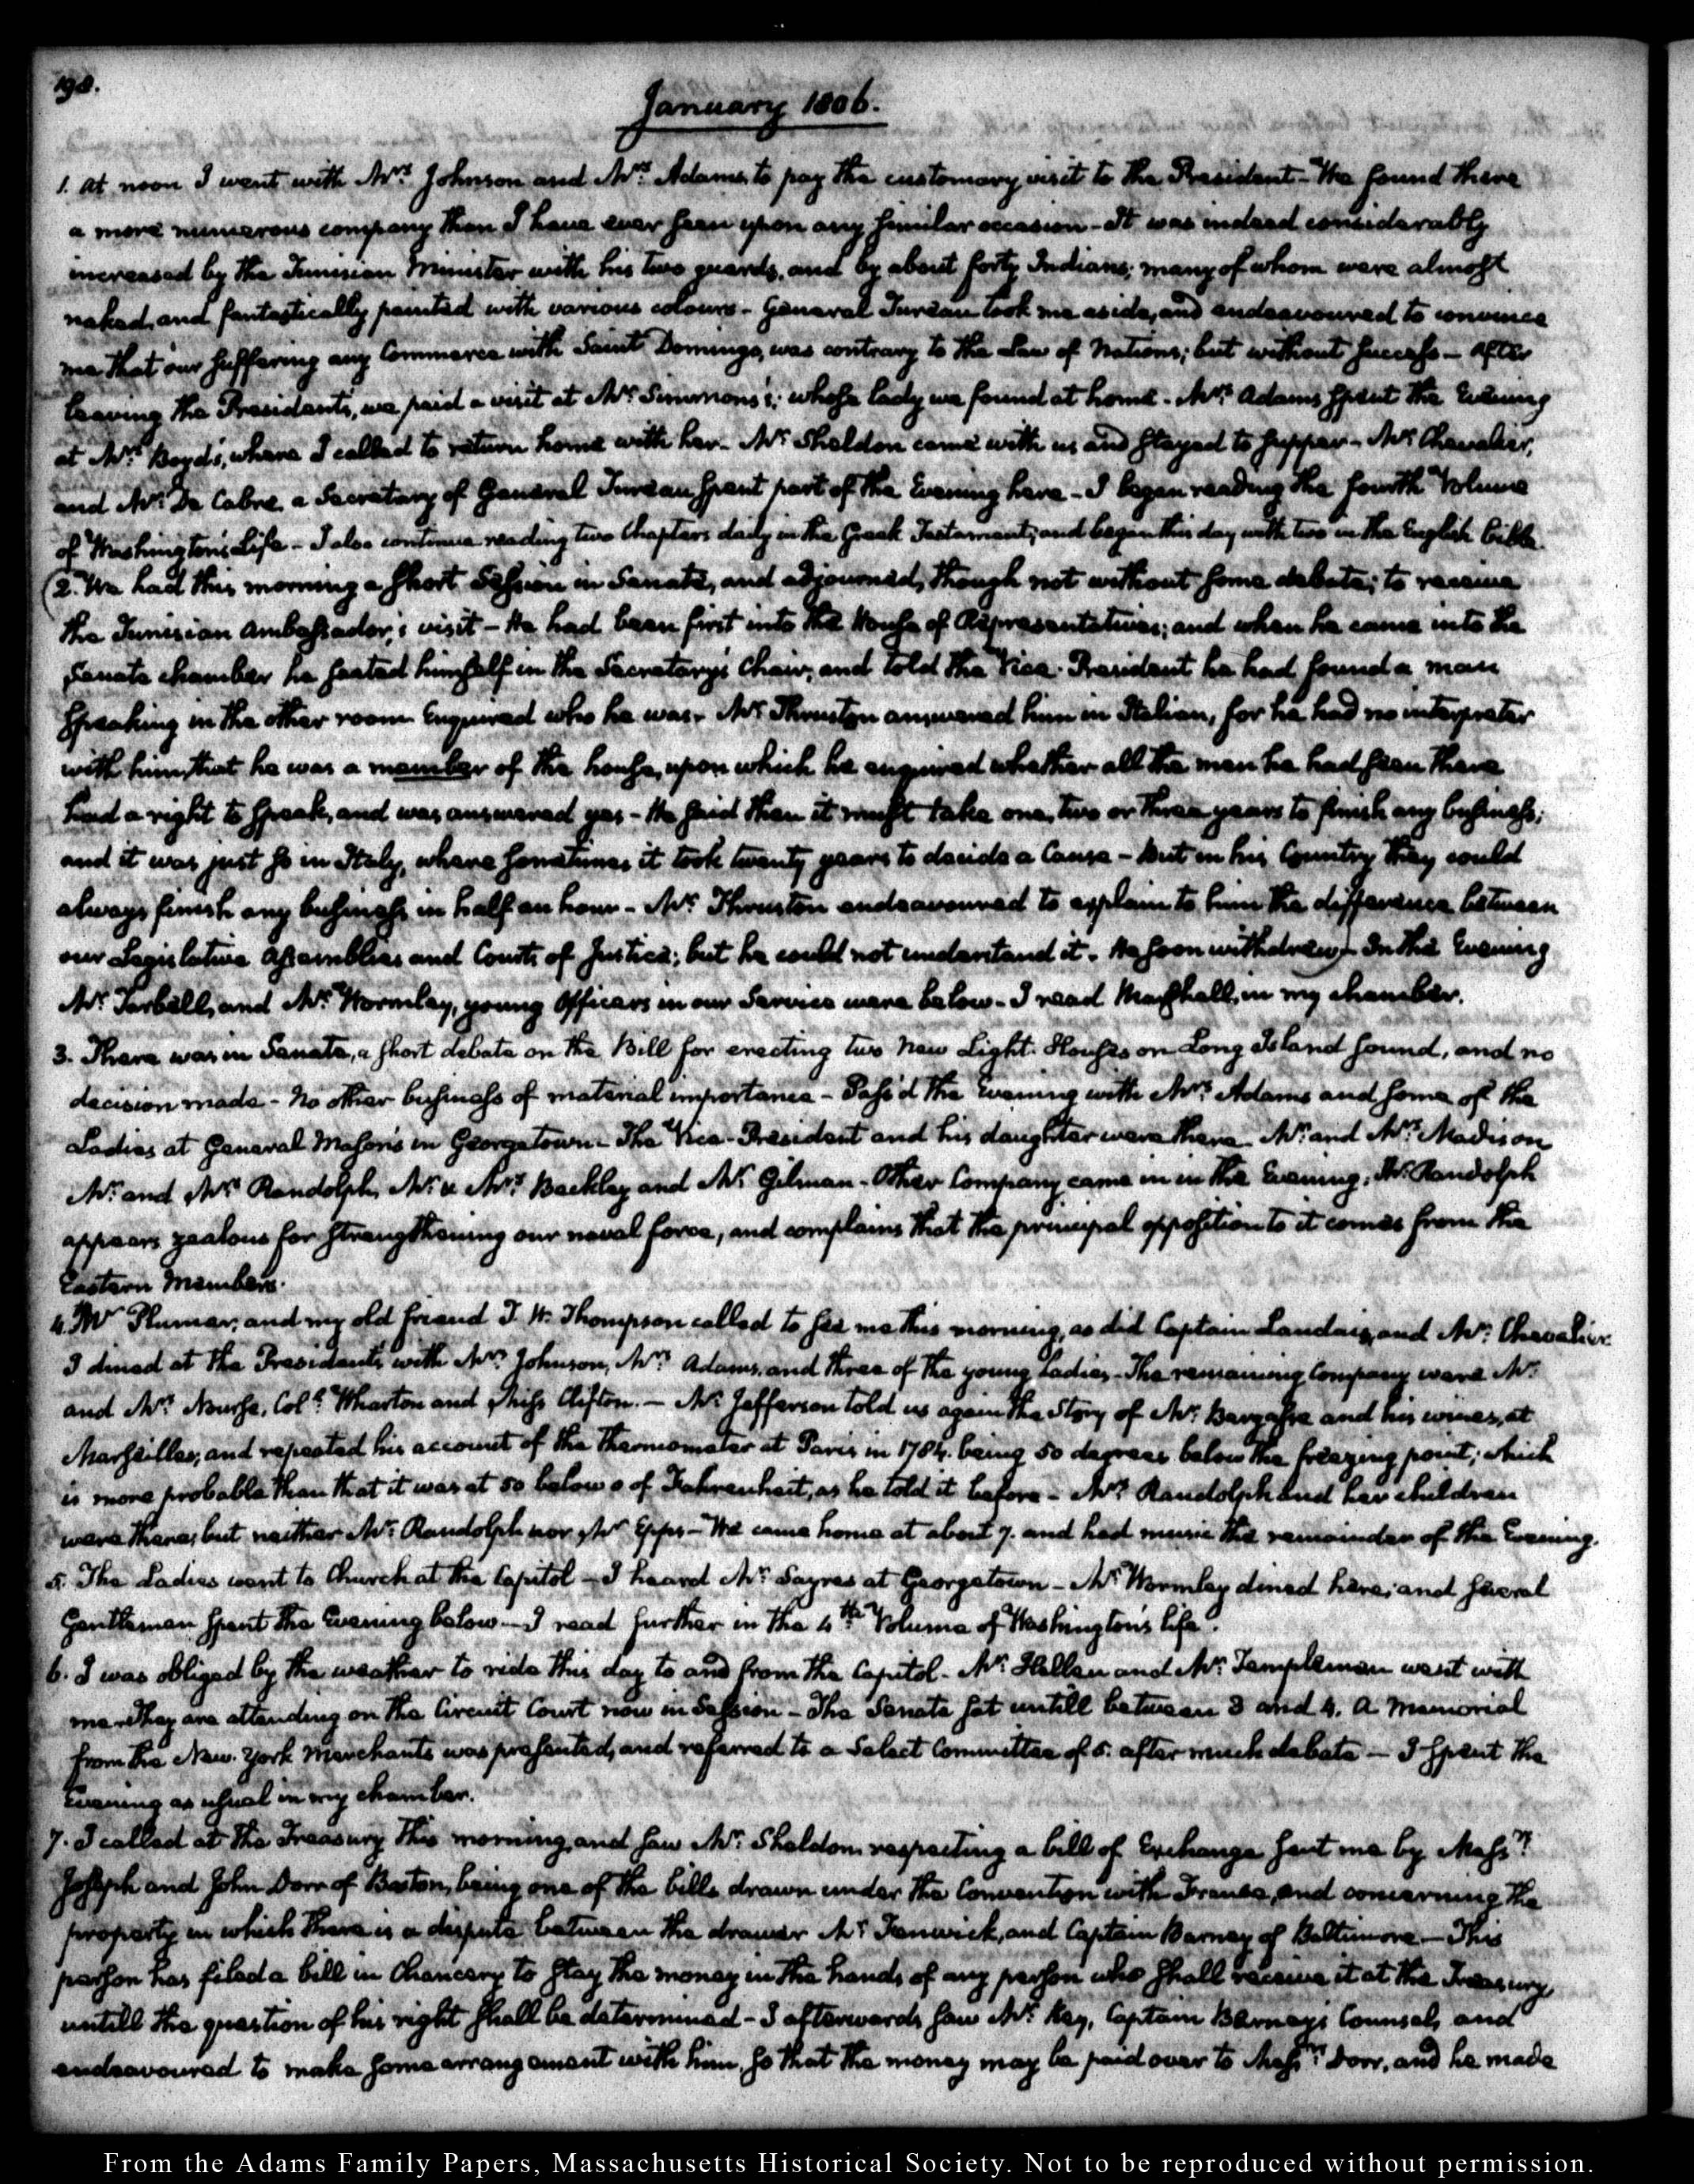 198.
January 1806.
1. At noon I went with Mrs. Johnson and Mrs. Adams, to pay the customary visit to the President - We found there
a more numerous company than I have ever seen upon any similar occasion - It was indeed considerably
increased by the Tunisian Minister with his two guards, and by about forty Indians; many of whom were almost
naked, and fantastically painted with various colours - General Tureau took me aside, and endeavoured to convince
me that our suffering any Commerce with Saint Domingo, was contrary to the Law of Nations; but without success - After
leaving the President's, we paid a visit at Mr. Simmons's; whose lady we found at home - Mrs. Adams spent the Evening
at Mrs. Boyd's, where I called to return home with her - Mr. Sheldon came with us and stayed to supper - Mr. Chevalier,
and Mr. De Cabre, a Secretary of General Tureau spent part of the Evening here - I began reading the fourth Volume
of Washington's Life - I also continue reading two Chapters daily in the Greek Testament; and began this day with two in the English bible.
2. We had this morning a short Session in Senate, and adjourned, though not without some debate; to receive
the Tunisian Ambassador's visit - He had been first into the House of Representatives; and when he came into the
Senate chamber he seated himself in the Secretary's Chair, and told the Vice-President he had found a man
speaking in the other room Enquired who he was. Mr. Thruston answered him in Italian, for he had no interpreter
with him, that he was a member of the house, upon which he enquired whether all the men he had seen there
had a right to speak, and was answered yes - He said then it must take one, two or three years to finish any business;
and it was just so in Italy, where sometimes it took twenty years to decide a Cause - But in his Country they could
always finish any business in half an hour - Mr. Thruston endeavoured to explain to him the difference between
our Legislative Assemblies and Courts of Justice; but he could not understand it. He soon withdrew - In the Evening
Mr. Tarbell, and Mr. Wormley, young Officers in our Service were below - I read Marshall, in my chamber.
3. There was in Senate, a short debate on the Bill for erecting two new Light-Houses on Long Island Sound, and no
decision made - No other business of material importance - Pass'd the Evening with Mrs. Adams and some of the
Ladies at General Mason's in Georgetown - The Vice-President and his daughter were there - Mr. and Mrs. Madison
Mr. and Mrs. Randolph, Mr. & Mrs. Beckley and Mr. Gilman - Other Company came in in the Evening; Mr. Randolph
appears zealous for strengthening our naval force, and complains that the principal opposition to it comes from the
Eastern Members.
4. Mr Plumer, and my old friend T. W. Thompson called to see me this morning, as did Captain Landais, and Mr. Chevalier
I dined at the President's with Mrs. Johnson, Mrs. Adams, and three of the young Ladies - The remaining Company were Mr.
and Mrs. Nourse, Coll. Wharton and Miss Clifton. - Mr. Jefferson told us again the Story of Mr. Bergasse and his wines, at
Marseilles, and repeated his account of the Thermometer at Paris in 1784. being 50 degrees below the freezing point; which
is more probable than that it was at 50 below 0 of Fahrenheit, as he told it before - Mrs. Randolph and her children
were there, but neither Mr. Randolph nor Mr Epps - We came home at about 7. and had music the remainder of the Evening.
5. The Ladies went to Church at the Capitol - I heard Mr. Sayres at Georgetown - Mr. Wormley dined here; and several
Gentlemen spent the Evening below - I read further in the 4th. Volume of Washington's life.
6. I was obliged by the weather to ride this day to and from the Capitol. Mr. Hellen and Mr. Templeman went with
me - They are attending on the Circuit Court now in Session - The Senate sat untill between 3 and 4. A Memorial
from the New-York Merchants was presented, and referred to a Select Committee of 5. after much debate - I spent the
Evening as usual in my chamber.
7. I called at the Treasury this morning, and saw Mr. Sheldon, respecting a bill of Exchange sent me by Messrs.
Joseph and John Dorr of Boston, being one of the bills drawn under the Convention with France, and concerning the
property in which there is a dispute between the drawer Mr. Fenwick, and Captain Barney of Baltimore - This
person has filed a bill in Chancery to stay the money in the hands of any person who shall receive it at the Treasury,
untill the question of his right shall be determined - I afterwards saw Mr. Key, Captain Barney's Counsel, and
endeavoured to make some arrangement with him, so that the money may be paid over to Messrs. Dorr, and he made
From the Adams Family Papers, Massachusetts Historical Society. Not to be reproduced without permission.